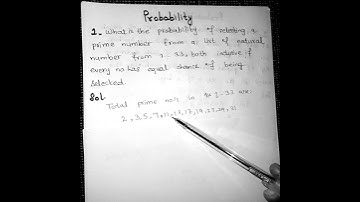 Probability
1. What is the probability of selecting a
prime number from a list of natural
number from 1 - 33, both inclusive if
every no has equal chance of being
selected.
Sol.
Total prime no's in to 1-33 are
2, 3, 5, 7, 11, 13, 17, 19, 23, 29, 31